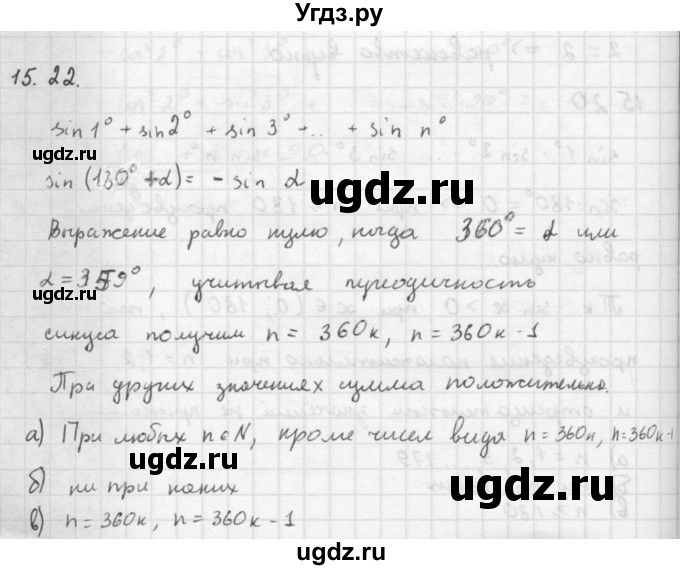 Угдз.ру
15.22.
sin 1° + sin 2° + sin 3° + .. + sin n°
ugdz.ru
sin (180° + α) = - sin α
ugdz.ru
Выражение равно нулю, когда 360° = α или
α = 359°, учитывая периодичность
ugdz.ru
синуса получим n = 360к, n = 360к - 1
ugdz.ru
При других значениях сумма положительна.
а) При любых n ∈ N, кроме чисел вида n = 360к, n = 360к - 1
ugdz.ru
б) ни при каких
ugdz.ru
в) n = 360к, n = 360к - 1
ugdz.ru
ugdz.ru